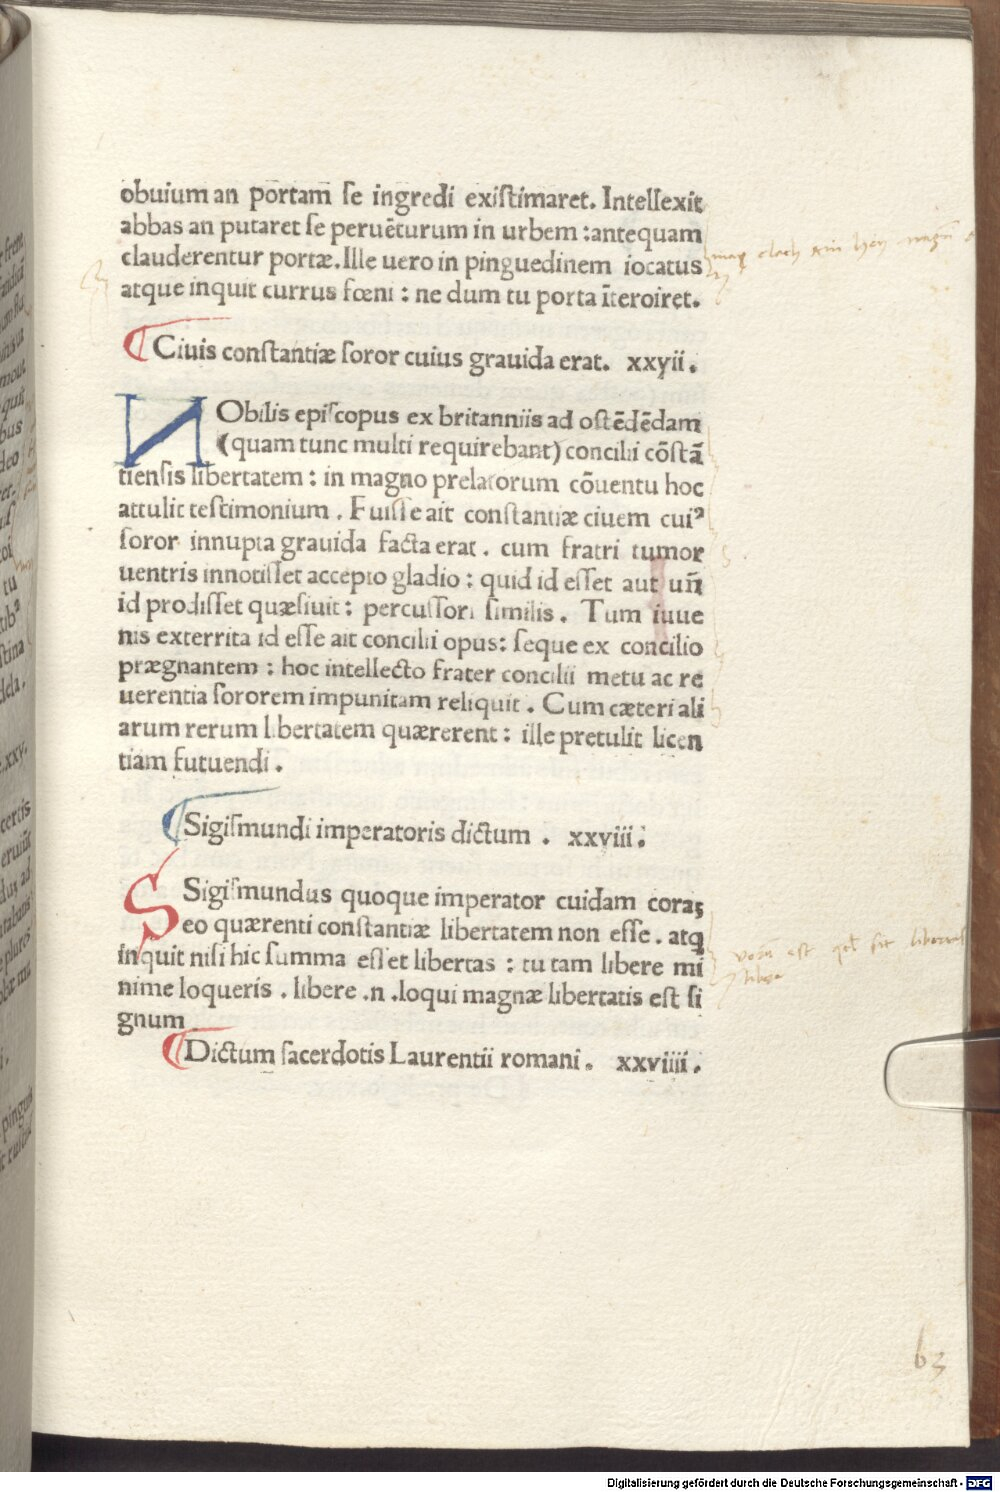 obuium an portam se ingredi existimaret. Intellexit
abbas an putaret se peruēturum in urbem : antequam
clauderentur portæ. Ille uero in pinguedinem iocatus
atque inquit currus fœni : ne dum tu porta īteroiret.
Ciuis constantiæ soror cuius grauida erat. xxyii.
NObilis episcopus ex britanniis ad ostēdēdam
(quam tunc multi requirebant) concilii cōstā
tiensis libertatem : in magno prelatorum cōuentu hoc
attulit testimonium . Fuisse ait constantiæ ciuem cuiꝰ
soror innupta grauida facta erat . cum fratri tumor
uentris innotisset accepto gladio : quid id esset aut un̄
id prodisset quæsiuit : percussori similis . Tum iuue
nis exterrita id esse ait concilii opus : seque ex concilio
prægnantem : hoc intellecto frater concilii metu ac re
uerentia sororem impunitam reliquit . Cum cæteri ali
arum rerum libertatem quærerent : ille pretulit licen
tiam futuendi .
Sigismundi imperatoris dictum . xxviii .
S Sigismundus quoque imperator cuidam coraꝫ
eo quærenti constantiæ libertatem non esse . atqꝫ
inquit nisi hic summa esset libertas : tu tam libere mi
nime loqueris . libere .n .loqui magnæ libertatis est si
gnum
Dictum sacerdotis Laurentii romani . xxviiii .
63
Digitalisierung gefördert durch die Deutsche Forschungsgemeinschaft - DFG